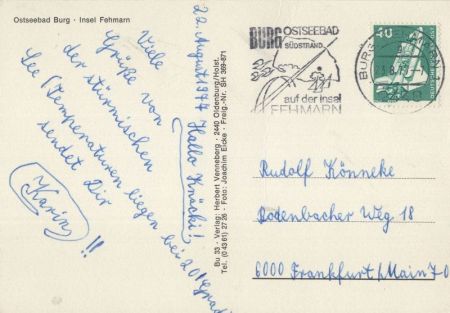 Ostseebad Burg · Insel Fehmarn
22. August 1977
Hallo Knäcki!
Viele
Grüße von
der stürmischen
See (Temperaturen liegen bei 20 grad)
sendet Dir
Karin
!!!
Bu 33 - Verlag: Herbert Venneberg · 2440 Oldenburg/Holst.
Tel. (0 43 61) 27 26 · Foto: Joachim Eicke · Freig.-Nr. SH 369-871
BURG OSTSEEBAD
SÜDSTRAND
auf der Insel
FEHMARN
40
DEUTSCHE BUNDESPOST
2440
Rudolf Könneke
Rodenbacher Weg 18
6000 Frankfurt/Main 70